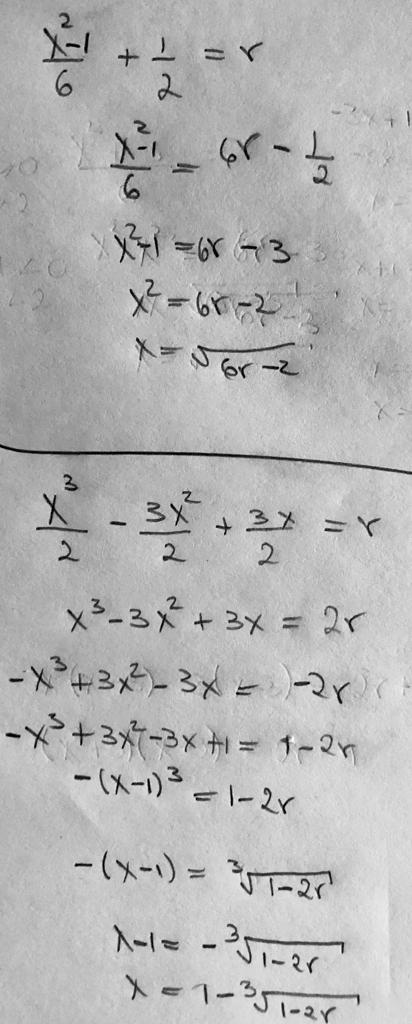 (x²-1)/6 + 1/2 = r
(x²-1)/6 = 6r - 1/2
x²-1 = 6r - 3
x² = 6r - 2
x = √(6r-2)
x³/2 - 3x²/2 + 3x/2 = r
x³ - 3x² + 3x = 2r
-x³ + 3x² - 3x = -2r
-x³ + 3x² - 3x + 1 = 1 - 2r
-(x-1)³ = 1-2r
-(x-1) = ³√(1-2r)
x-1 = -³√(1-2r)
x = 1-³√(1-2r)